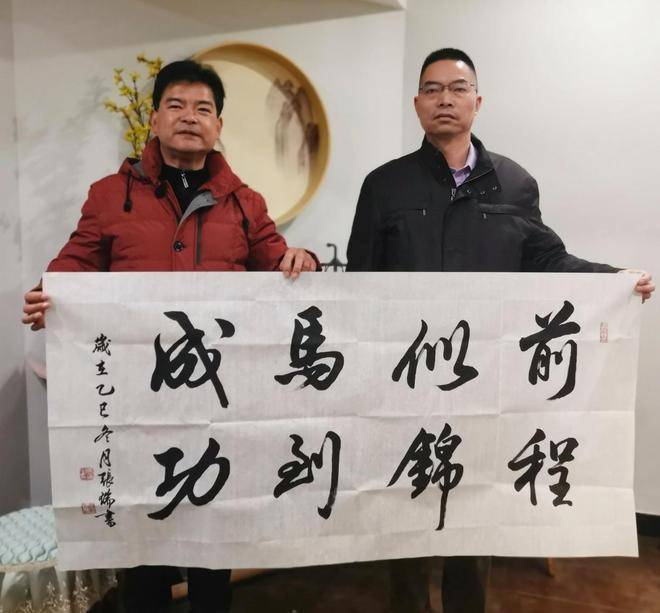 前程
似錦
馬到
成功
歲在乙巳冬月張瑞書